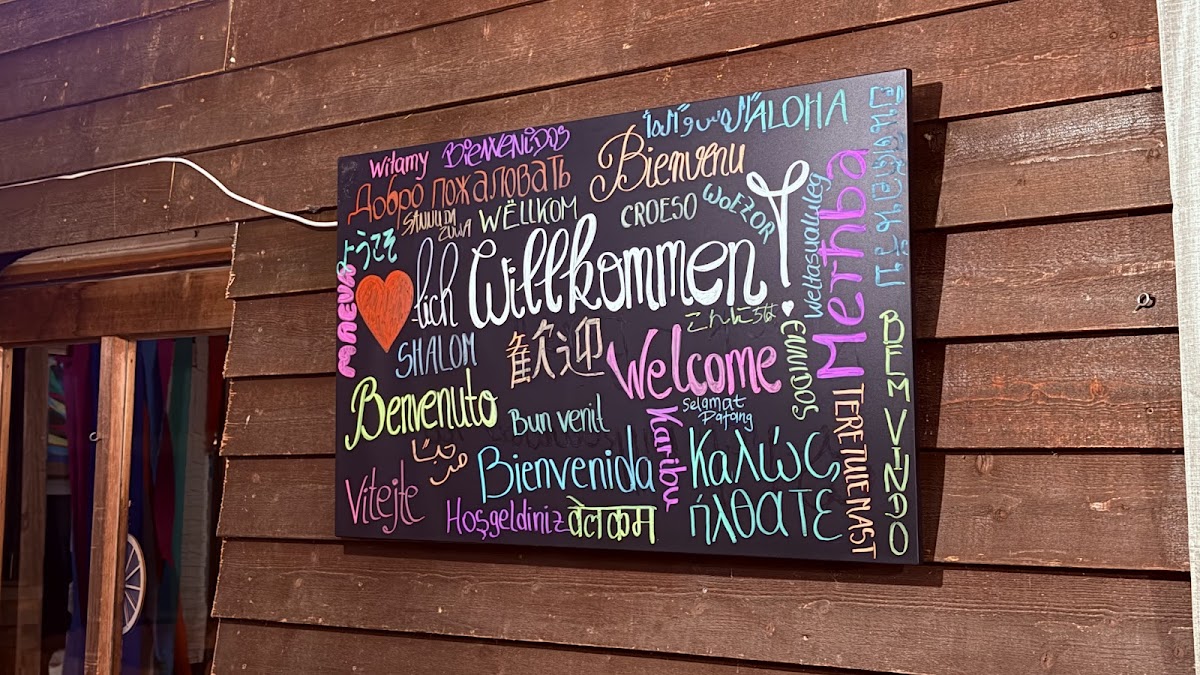 Witamy
BIENVENIDOS
ALOHA
Добро пожаловать
Bienvenu
SANNU DA
ZUWA
WËLLKOM
CROESO
WOEZOR
ようこそ
lich Willkommen!
Weltasualuleg
Merhba
MAEVA
SHALOM
歓迎
こんにちは
Welcome
BEMVINDO
Benvenuto
Bun venit
Selamat
Datang
Karibu
TERE TULEMAST
مرحبًا
Bienvenida
Καλώς
ήλθατε
Vitejte
Hoşgeldiniz
वेलकम